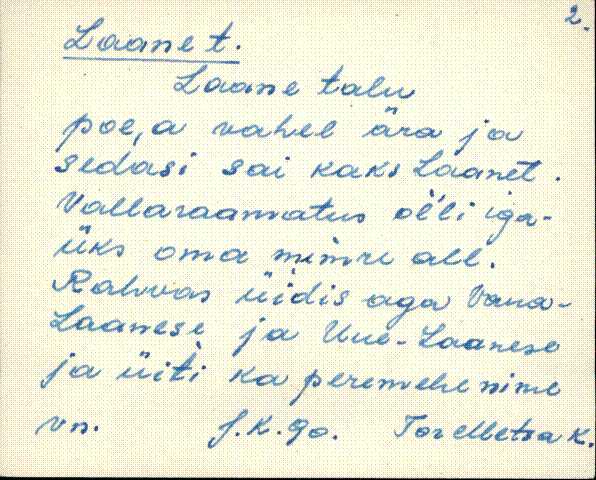 2.
Laanet.
Laane talu
poe,a vahel ära ja
sedasi sai kaks Laanet.
Vallaraamatus oĺli iga-
üks oma nimre all.
Rahvas üidis aga Vana-
Laanese ja Uue-Laanese
ja üiti ka peremehe nime
vn. J.K.90. Tor